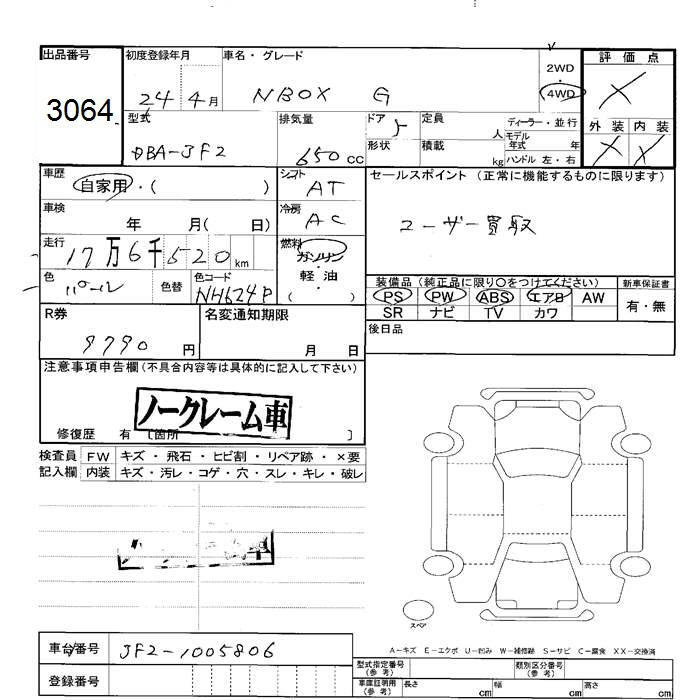 出品番号
3064
初度登録年月
24年4月
車名・グレード
NBOX G
2WD
・
4WD
評価点
×
外装 内装
× ×
型式
DBA-JF2
排気量
650cc
ドア
5
形状
定員
人
積載
kg
ディーラー・並行
モデル年式 年
ハンドル 左・右
車歴
自家用・( )
シフト
AT
セールスポイント (正常に機能するものに限ります)
ユーザー買取
車検
年 月( 日)
冷房
AC
走行
17万6千520km
燃料
ガソリン
・
軽油
( )
色
パール
色替
色コード
NH624P
装備品(純正品に限り○をつけてください)
PS PW ABS エアB AW
SR ナビ TV カワ
新車保証書
有・無
R券
9790円
名変通知期限
月 日
後日品
注意事項申告欄(不具合内容等は具体的に記入して下さい)
ノークレーム車
修復歴 有 〔箇所 〕
検査員 FW キズ・飛石・ヒビ割・リペア跡・×要
記入欄 内装 キズ・汚レ・コゲ・穴・スレ・キレ・破レ
スペア
A-キズ E-エクボ U-凹み W-補修跡 S-サビ C-腐食 XX-交換済
車台番号
JF2-1005806
登録番号
型式指定番号
(参考)
類別区分番号
(参考)
車庫証明用
(参考)
長さ cm 幅 cm 高さ cm